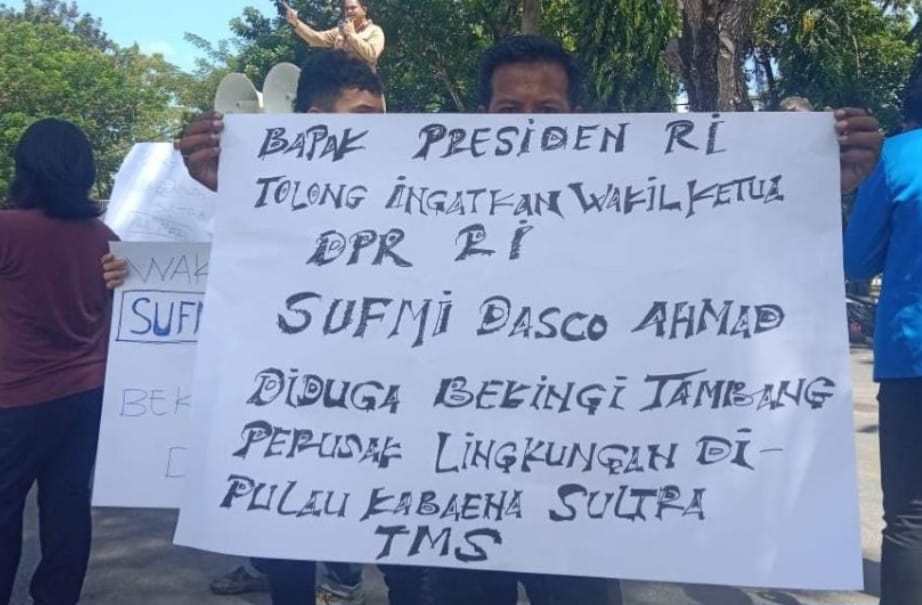 BAPAK PRESIDEN RI
TOLONG INGATKAN WAKIL KETUA
DPR RI
SUFMI DASCO AHMAD
DIDUGA BEKINGI TAMBANG
PERUSAK LINGKUNGAN DI-
PULAU KABAENA SULTRA
TMS
WAK
SUFM
BEK
D